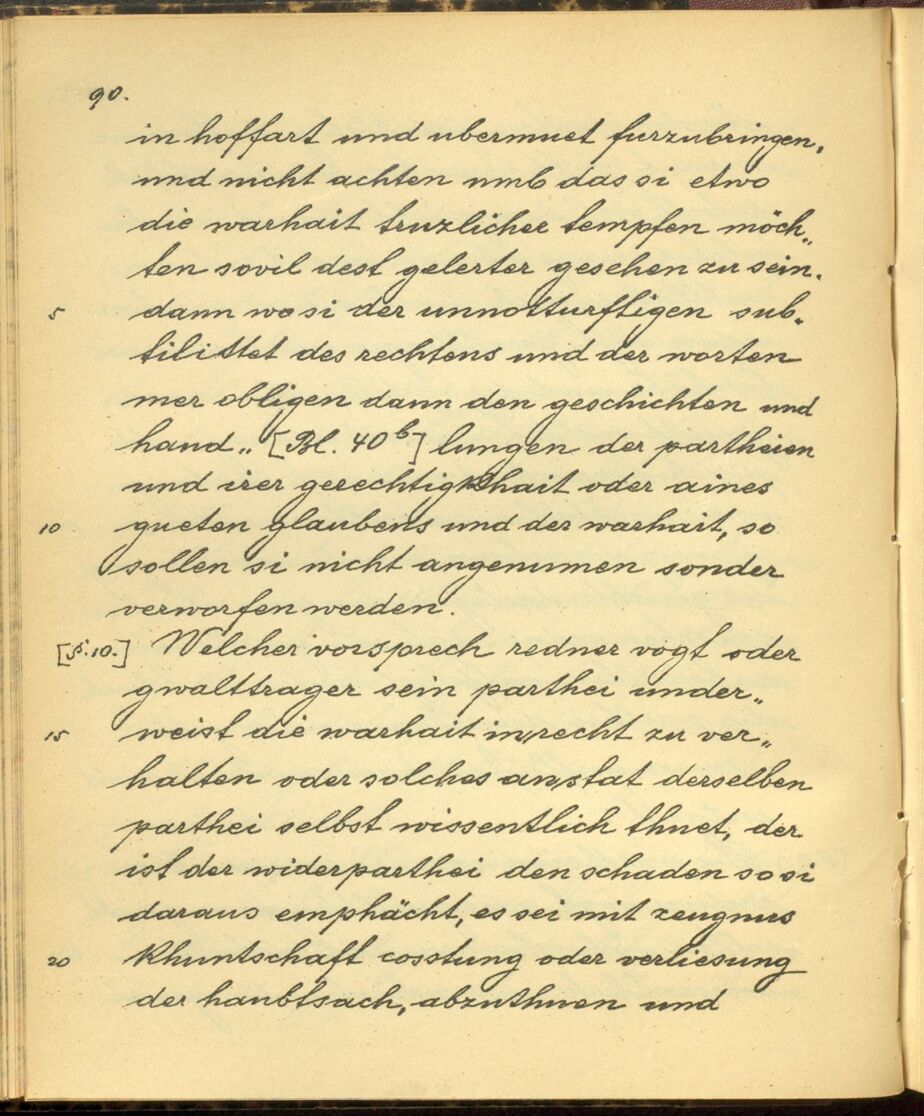 90.
in hoffart und ubermuet furzubringen,
und nicht achten umb das si etwo
die warhait truzlicher tempfen möch„
ten sovil dest gelerter gesehen zu sein.
5 dann wo si der unnotturftigen sub„
tilittet des rechtens und der worten
mer obligen dann den geschichten und
hand„ [Bl. 40b] lungen der partheien
und irer gerechtigkhait oder aines
10 gueten glaubens und der warhait, so
sollen si nicht angenumen sonder
verworfen werden.
[§.10.] Welcher vorsprech redner vogt oder
gwalttrager sein parthei under„
15 weist die warhait in recht zu ver„
halten oder solches anstat derselben
parthei selbst wissentlich thuet, der
ist der widerparthei den schaden so si
daraus emphächt, es sei mit zeugnus
20 khuntschaft cosstung oder verliesung
der haubtsach, abzuthuen und